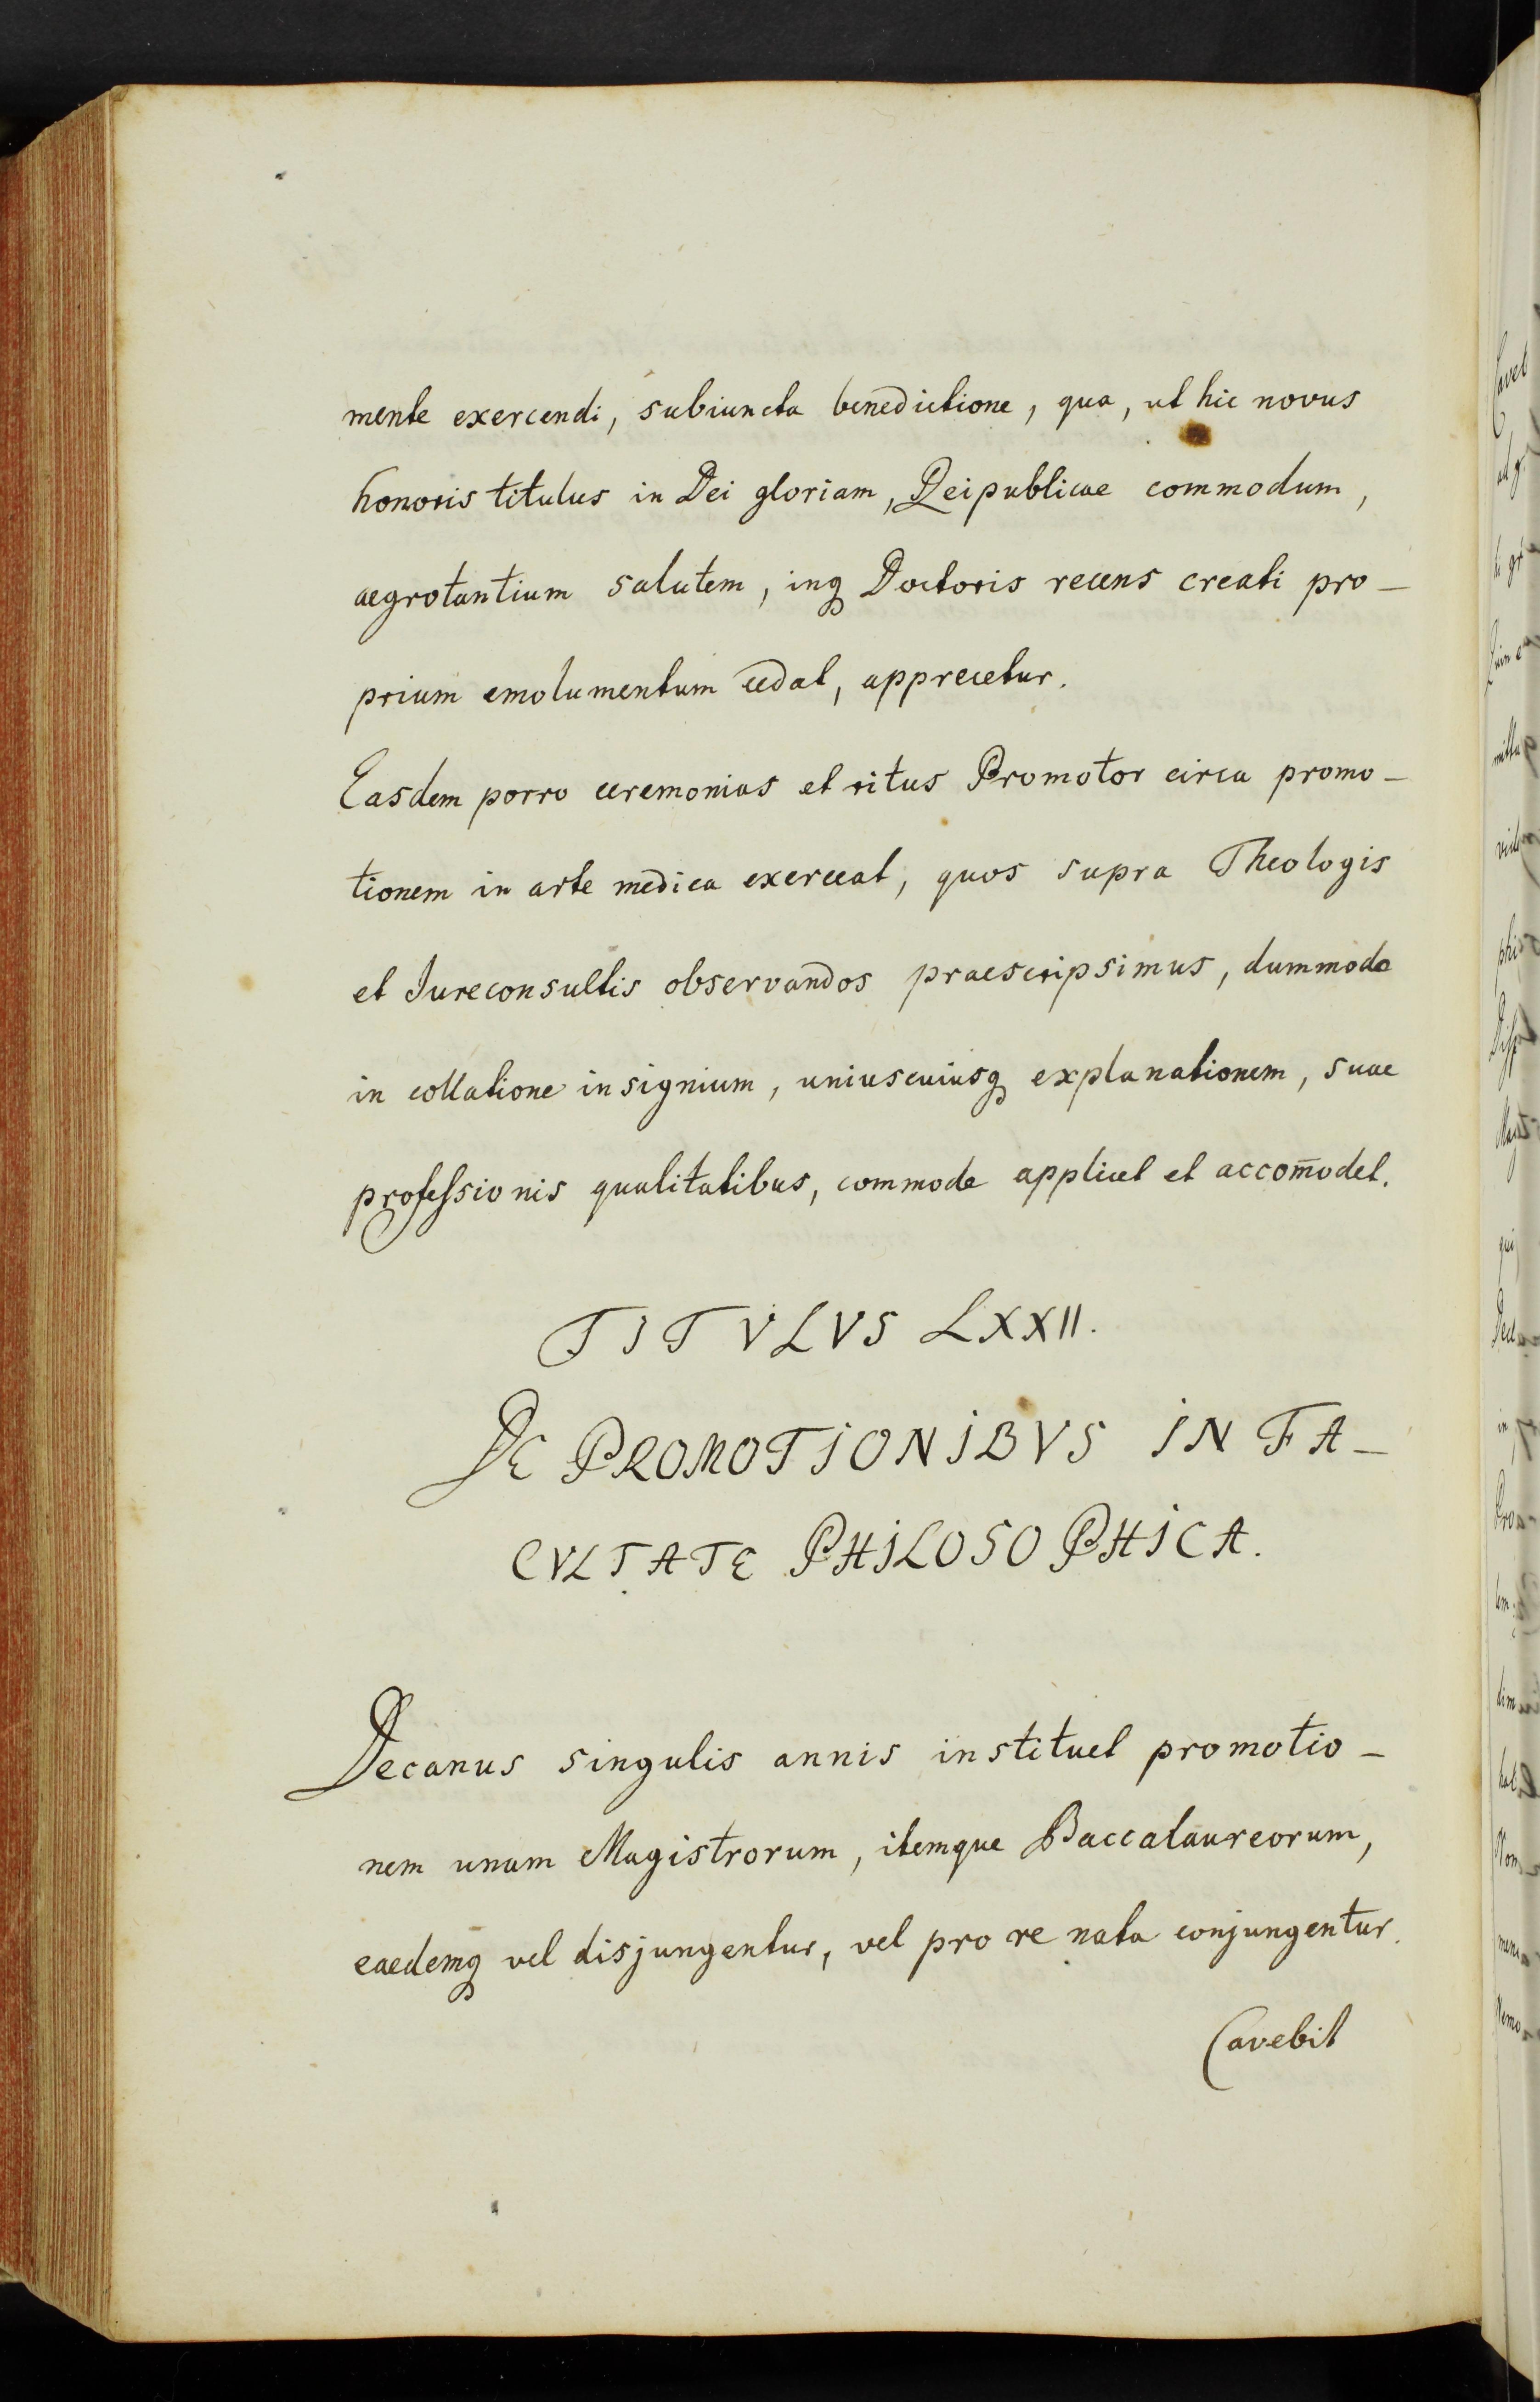 mente exercendi, subiuncta benedictione, qua, ut hic novus
honoris titulus in Dei gloriam, Reipublicae commodum,
aegrotantium salutem, inq Doctoris recens creati pro-
prium emolumentum cedat, apprecetur.
Easdem porro ceremonias et ritus Promotor circa promo-
tionem in arte medica exerceat, quos supra Theologis
et Jureconsultis observandos praescripsimus, dummodo
in collatione insignium, uniuscuiusq explanationem, suae
professionis qualitatibus, commode applicet et accom̄odet.
TITVLVS LXXII.
DE PROMOTIONIBVS IN FA-
CVLTATE PHILOSOPHICA.
Decanus singulis annis instituet promotio-
nem unam Magistrorum, itemque Baccalaureorum,
eaedemq vel disjungentur, vel pro re nata conjungentur.
Cavebit